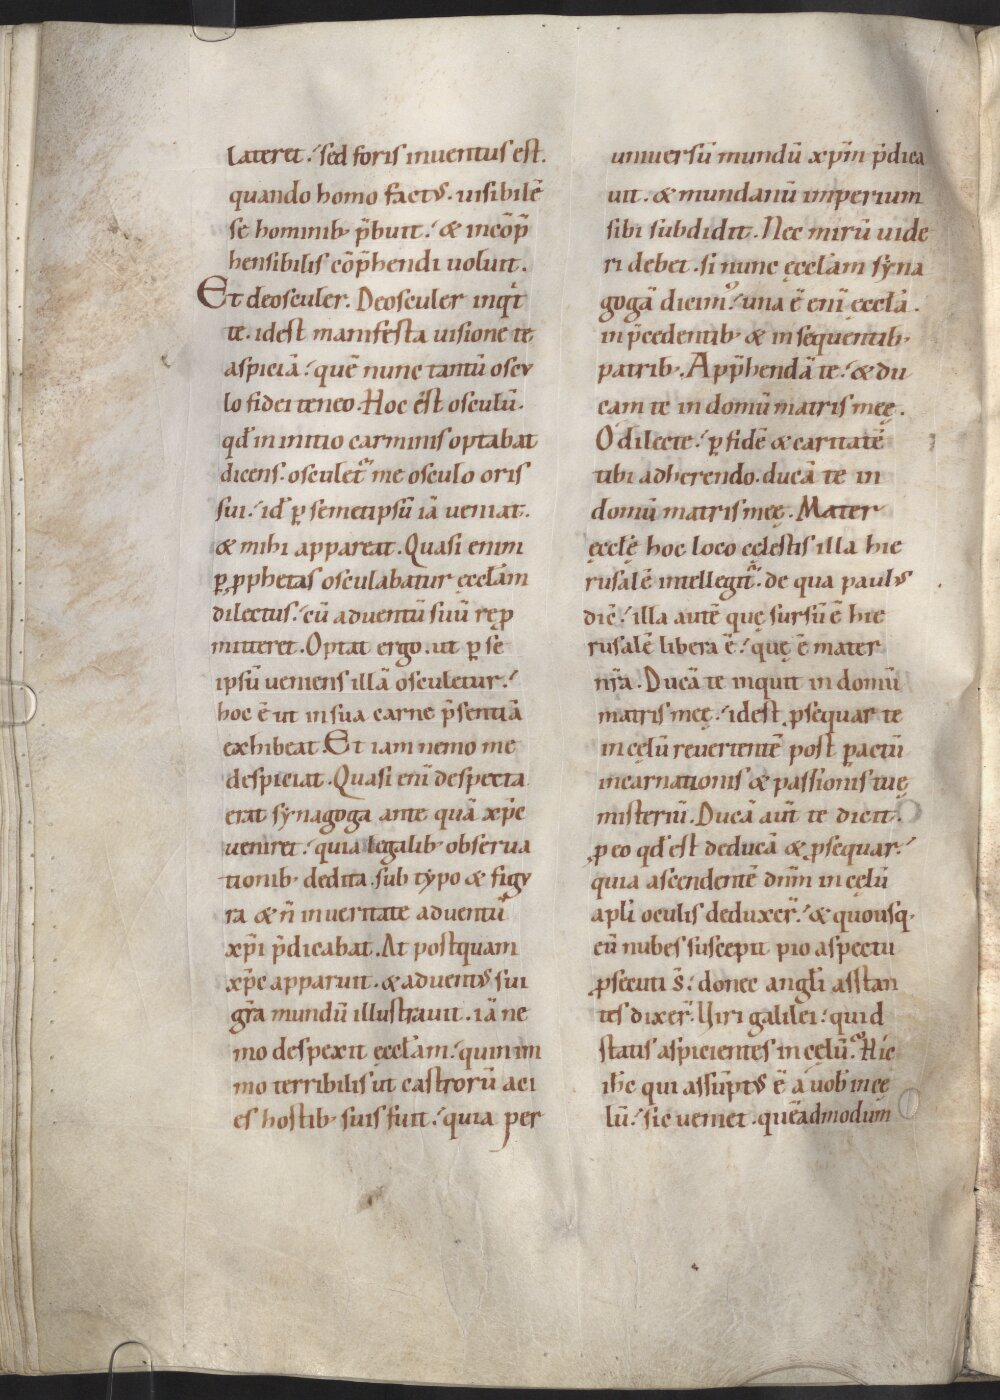 lateret. sed foris inventus est.
quando homo factus. uisibilē
se hominib; p̄buit. & incōp̄
hensibilis cōp̄hendi uoluit.
Et deosculer. Deosculer inqͥt
te. idest manifesta uisione te
aspiciā. quē nunc tantū oscu
lo fidei teneo. Hoc ēst osculū.
qđ in initio carminis optabat
dicens. osculet᷑ me osculo oris
sui. id ꝑ semetipsū iā ueniat.
& mihi appareat. Quasi enim
ꝑ ꝓphetas osculabatur ęccłam
dilectus. cū adventū suū ręꝓ
mitteret. Optat ergo. ut ꝑ se
ipsū ueniens illā osculetur.
hoc ē ut in sua carne p̄sentiā
exhibeat. Et iam nemo me
despiciat. Quasi enī despecta
erat synagoga ante quā xp̄c
ueniret. quia legalib; obserua
tionib; dedita. sub typo & figu
ra & n̄ in ueritate adventū
xp̄i p̄dicabat. At postquam
xp̄c apparuit. & adventus sui
gr̄a mundū illustrauit. iā ne
mo despexit ęccłam. quin im
mo terribilis ut castrorū aci
es hostib; suis fuit. quia per
uniuersū mundū xp̄m p̄dica
uit. & mundanū imperium
sibi subdidit. Nec mirū uide
ri debet. si nunc ęccłam syna
gogā dicimꝰ. una ē enī ęccła.
in p̄cedentib; & in sequentib;
patrib;. App̄hendā te. & du
cam te in domū matris meę.
O dilecte. ꝑ fidē & caritatē
tibi adherendo. ducā te in
domū matris meę. Mater
ęccłę hoc loco cęlestis illa hie
rusalē intellegit᷑. de qua paulus
dic̄. illa autē quę sursū ē hie
rusalē libera ē. quę ē mater
nr̄a. Ducā te inquit in domū
matris meę. idest ꝓsequar te
in cęlū reuertentē post ꝑactū
incarnationis & passionis tuę
misteriū. Ducā aūt te dicit.
ꝓ eo qđ est deducā & ꝓsequar.
quia ascendentē dn̄m in cęlū
apłi oculis deduxer̄. & quousq;
eū nubes suscepit pio aspectu
ꝓsecuti s̄. donec angłi asstan
tes dixer̄. Uiri galilei. quid
statis aspicientes in cęlū. Hic
ih̄c qui assūptus ē a uob in cę
lū. sic ueniet. quēadmodum